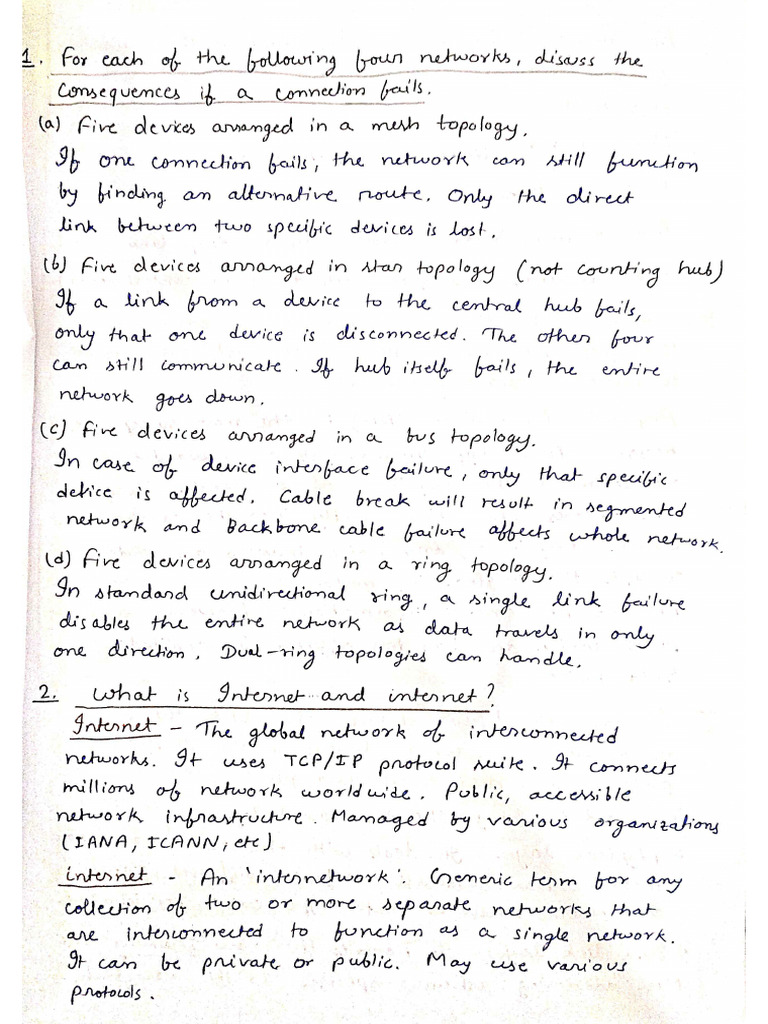 1. For each of the following four networks, discuss the
consequences if a connection fails.
(a) Five devices arranged in a mesh topology.
If one connection fails, the network can still function
by finding an alternative route. Only the direct
link between two specific devices is lost.
(b) Five devices arranged in star topology (not counting hub)
If a link from a device to the central hub fails,
only that one device is disconnected. The other four
can still communicate. If hub itself fails, the entire
network goes down.
(c) Five devices arranged in a bus topology.
In case of device interface failure, only that specific
device is affected. Cable break will result in segmented
network and Backbone cable failure affects whole network.
(d) Five devices arranged in a ring topology.
In standard unidirectional ring, a single link failure
disables the entire network as data travels in only
one direction. Dual-ring topologies can handle.
2. What is Internet and internet?
Internet - The global network of interconnected
networks. It uses TCP/IP protocol suite. It connects
millions of network worldwide. Public, accessible
network infrastructure. Managed by various organizations
(IANA, ICANN, etc)
internet - An 'internetwork'. Generic term for any
collection of two or more separate networks that
are interconnected to function as a single network.
It can be private or public. May use various
protocols.